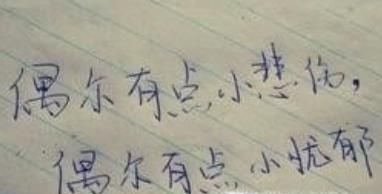 偶尔有点小悲伤，
偶尔有点小忧郁